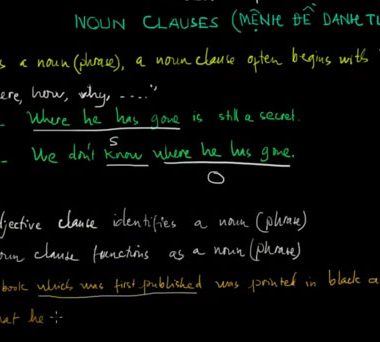 NOUN CLAUSES (MỆNH ĐỀ DANH TỪ
s a noun (phrase), a noun clause often begins with
ere, how, why, ....."
- Where he has gone is still a secret.
S
- We don't know where he has gone.
O
djective clause identifies a noun (phrase)
oun clause functions as a noun (phrase)
book which was first published was printed in black a
hat he